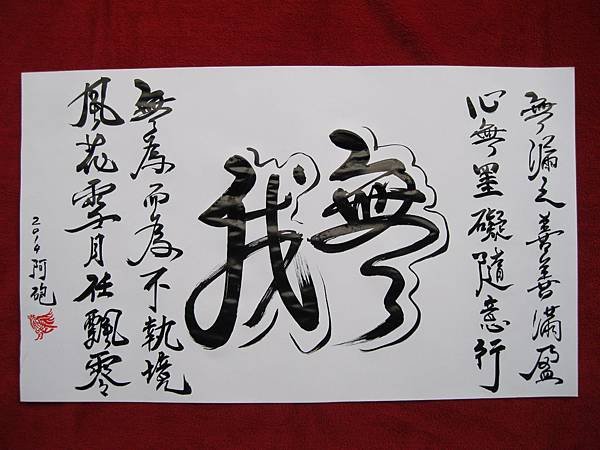 無漏之善善滿盈
心無罣礙隨意行
無我
無為而為不執境
風花雪月任飄零
2014 阿砲